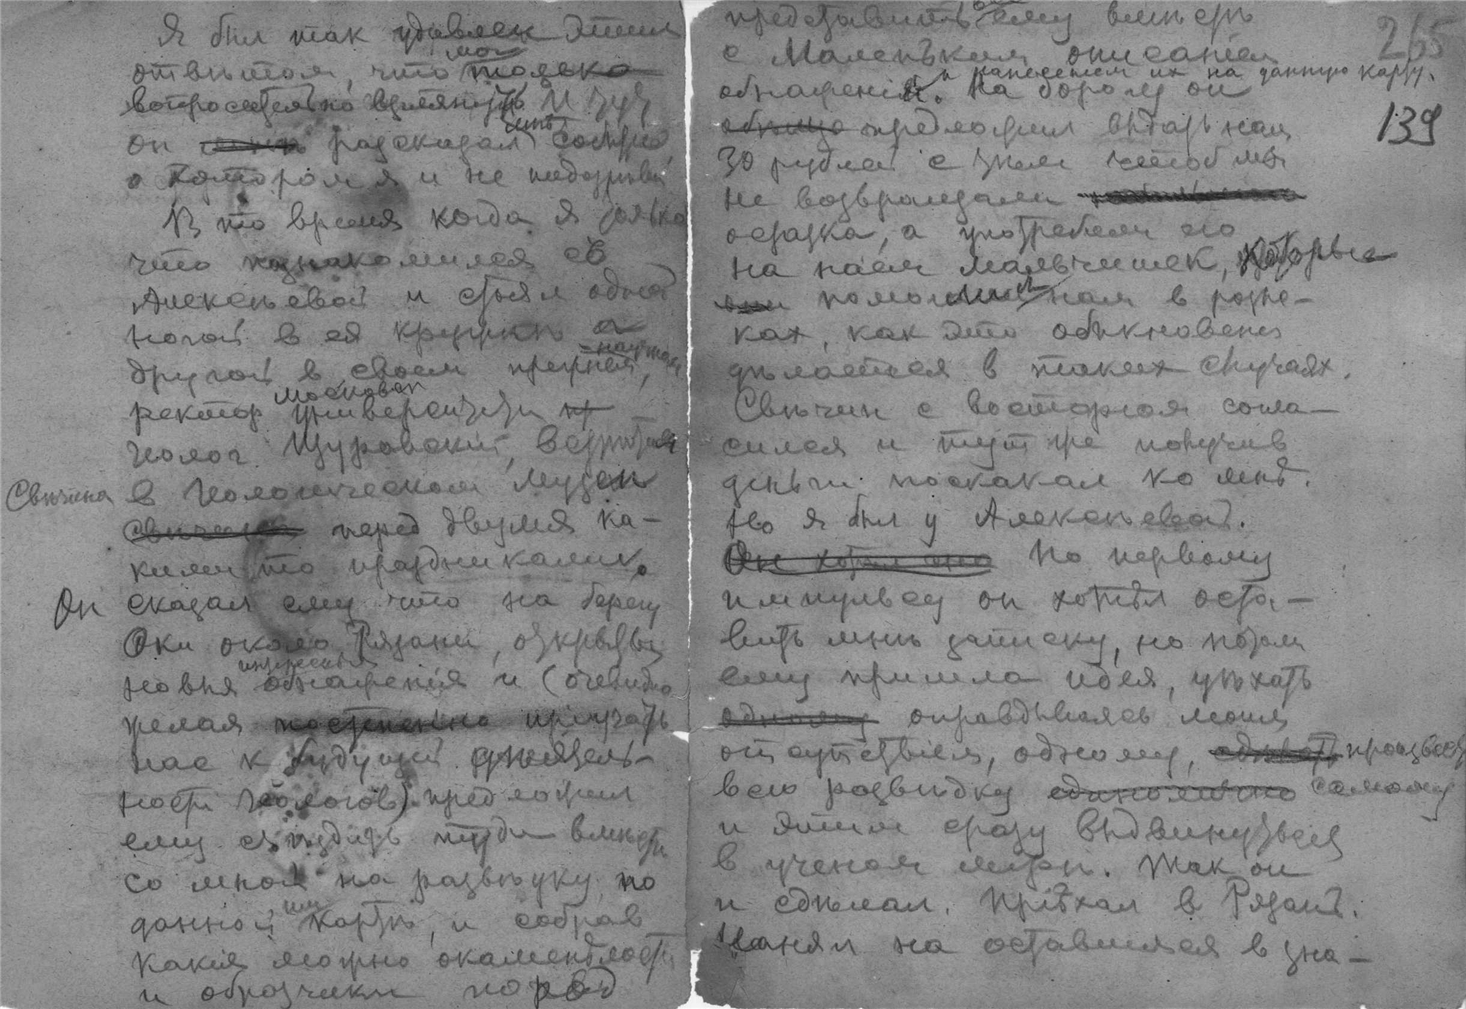 Я был так удивлен этим
отвѣтом, что мог только
вопросительно взглянуть и тут
он мнѣ разсказал
о котором я и не подозрѣвал
В то время когда я только
что познакомился съ
Алексѣевой и стоял одной
ногой в ея кружкѣ а
другой в своем прежнем, научном
ректор Московск университета
геолог Щуровскій, встрѣтив
Свѣчина в Геологическом музеи
Свѣчина перед двумя ка-
кими то праздниками.
Он сказал ему что на берегу
Оки около Рязани, открыты
новыя интересныя обнаженія и (очевидно
желая постепенно пріучать
нас к будущей дѣятель-
ности геологов) предложил
ему съѣздить туда вмѣстѣ
со мной на развѣдку по
данной им картѣ, и собрав
какія можно окаменѣлости
и образчики пород
представить ему вмѣстѣ
с маленьким описаніем
обнаженій и нанесеніем их на данную карту.
На дорогу он
предложил выдать нам
30 рублей с тѣм чтоб мы
не возвращали
остатка, а употребили его
на наем мальчишек, которые
помогли нам в розыс-
ках, как это обыкновенно
дѣлается в таких случаях.
Свѣчин с восторгом согла-
сился и тут же получив
деньги поскакал ко мнѣ.
Но я был у Алексѣевой.
Он хотѣл По первому
импульсу он хотѣл оста-
вить мнѣ записку, но потом
ему пришла идея, уѣхать
одному оправдываясь моим
отсутствіем, одному, произвести
всю развѣдку единолично самому
и этим сразу выдвинуться
в ученом мірѣ. Так он
и сдѣлал. Пріѣхал в Рязань.
Нанял на оставшіяся в
265
139